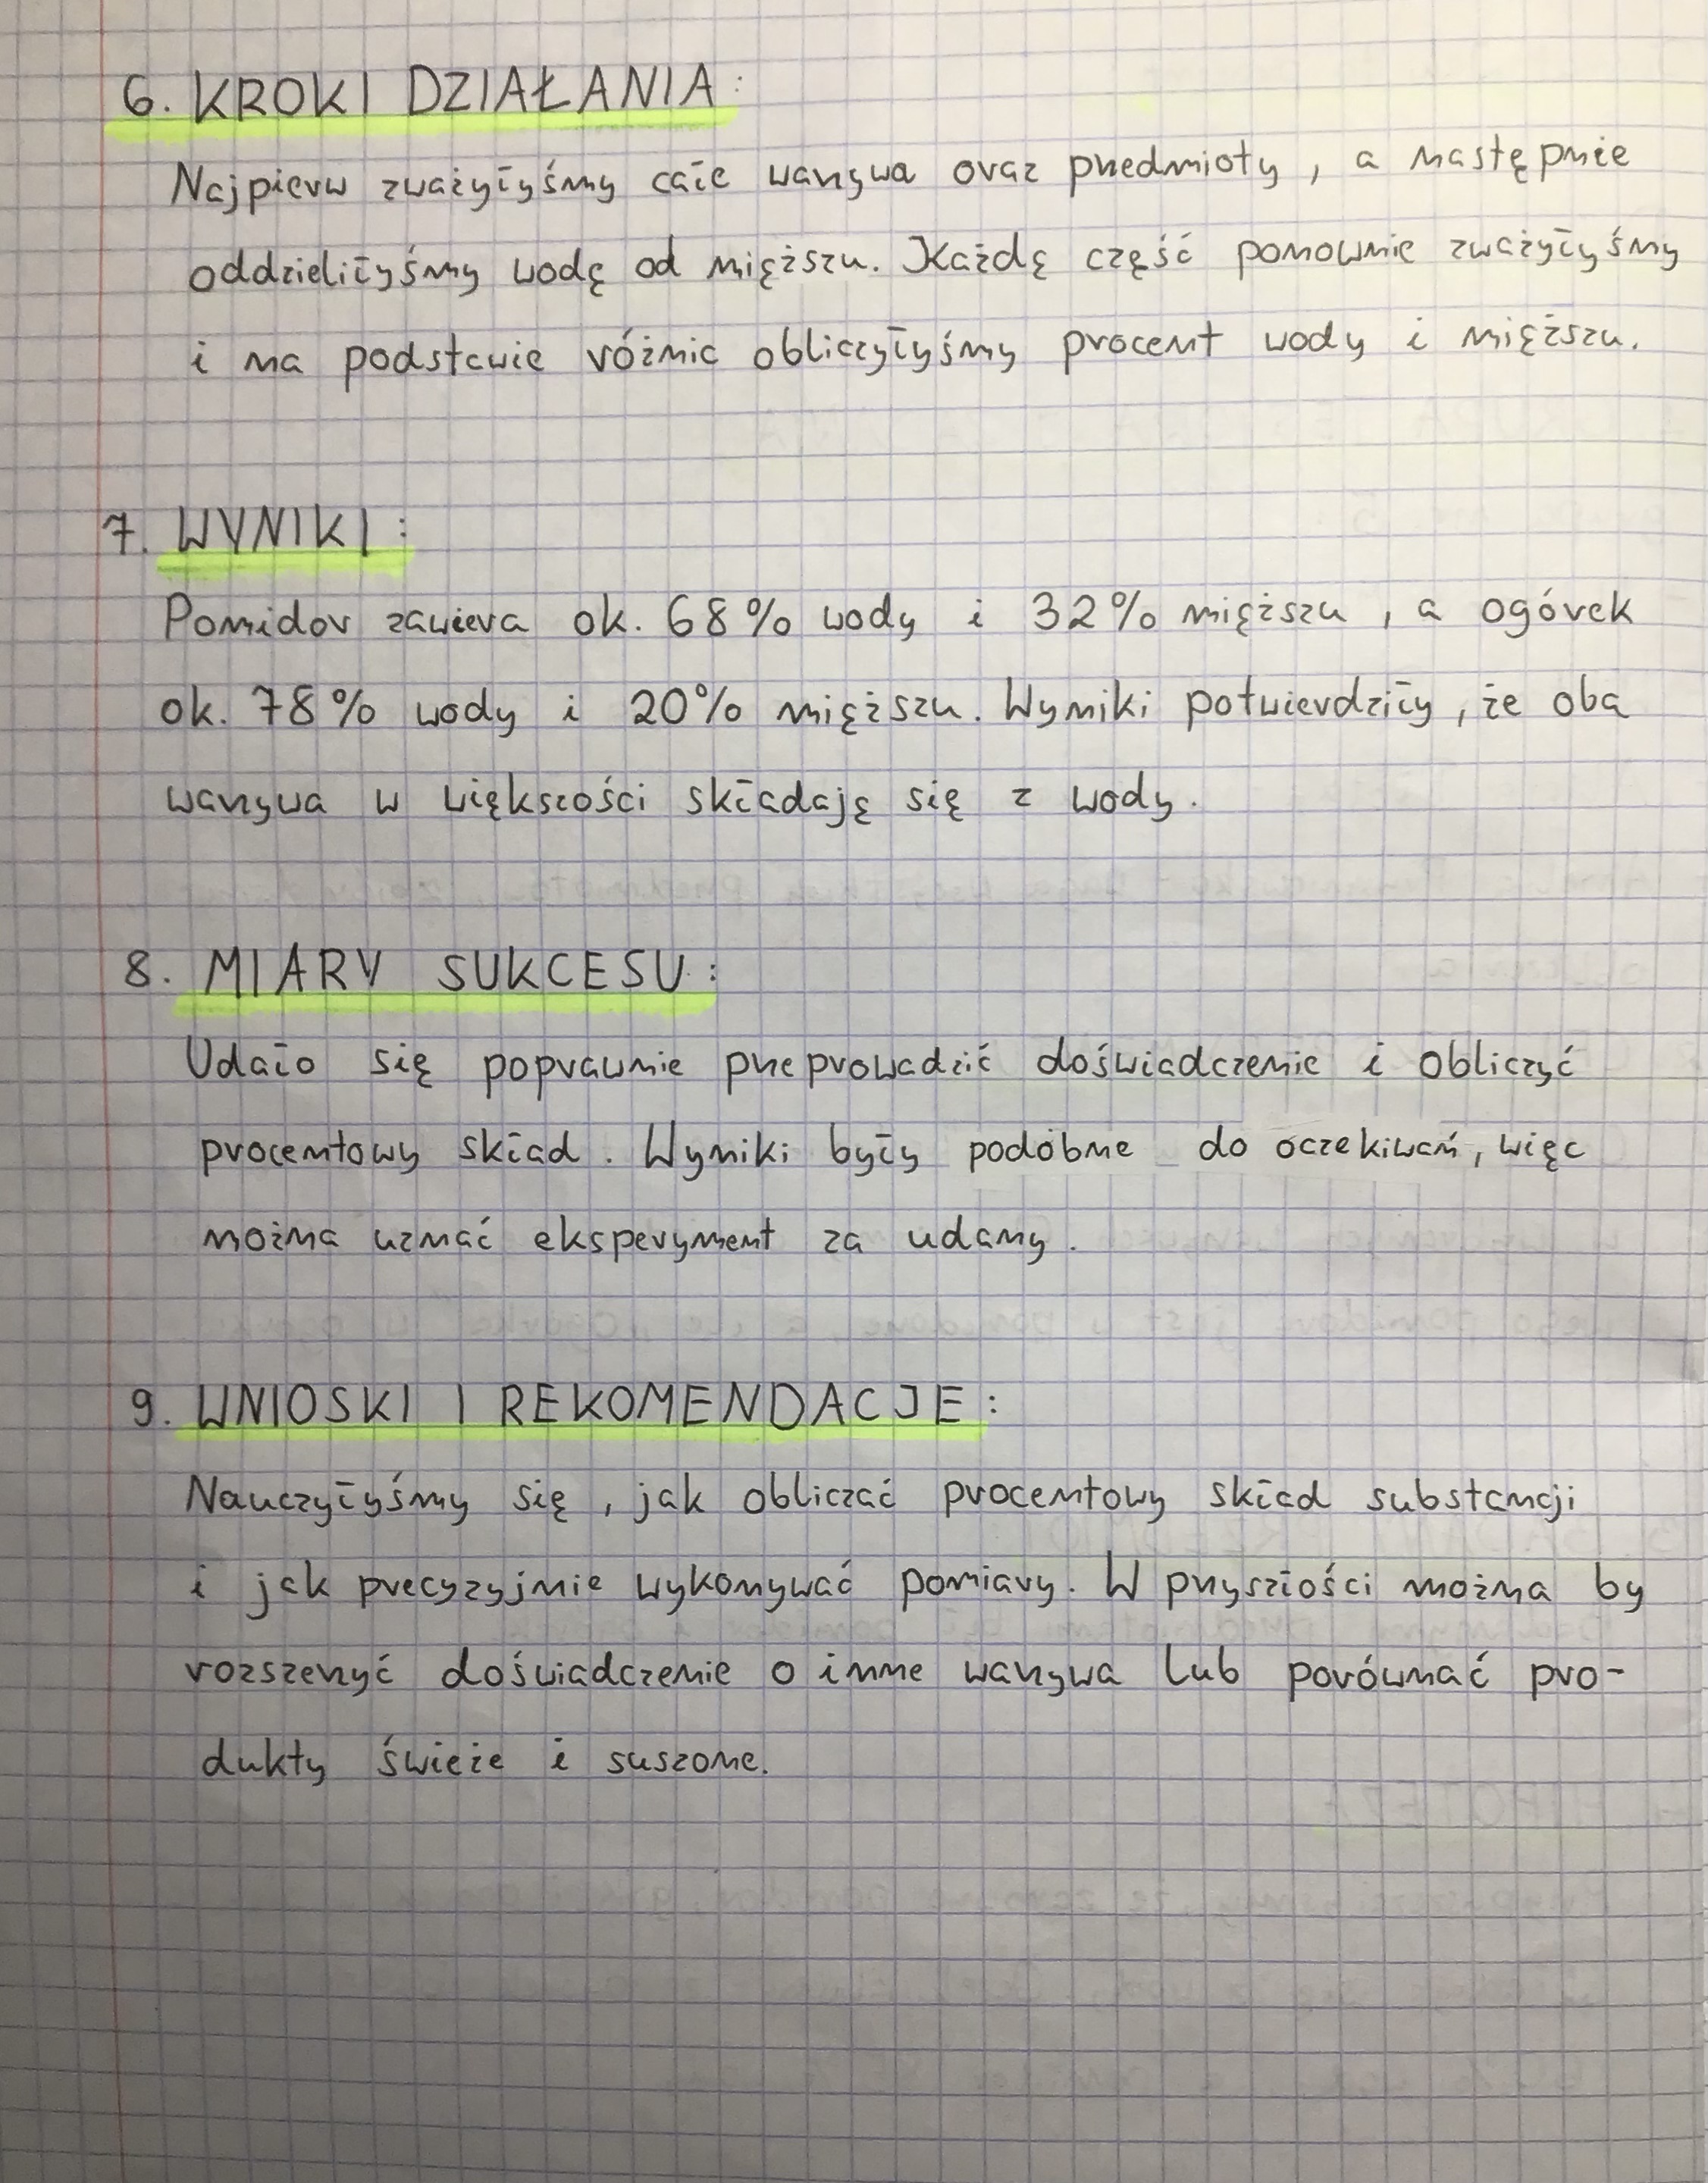 6. KROKI DZIAŁANIA:
Najpierw zważyłyśmy całe warzywa oraz przedmioty, a następnie
oddzieliłyśmy wodę od miąższu. Każdą część ponownie zważyłyśmy
i na podstawie różnic obliczyłyśmy procent wody i miąższu.
7. WYNIKI:
Pomidor zawiera ok. 68% wody i 32% miąższu, a ogórek
ok. 78% wody i 20% miąższu. Wyniki potwierdziły, że oba
warzywa w większości składają się z wody.
8. MIARY SUKCESU:
Udało się poprawnie przeprowadzić doświadczenie i obliczyć
procentowy skład. Wyniki były podobne do oczekiwań, więc
można uznać eksperyment za udany.
9. WNIOSKI I REKOMENDACJE:
Nauczyłyśmy się, jak obliczać procentowy skład substancji
i jak precyzyjnie wykonywać pomiary. W przyszłości można by
rozszerzyć doświadczenie o inne warzywa lub porównać pro-
dukty świeże i suszone.